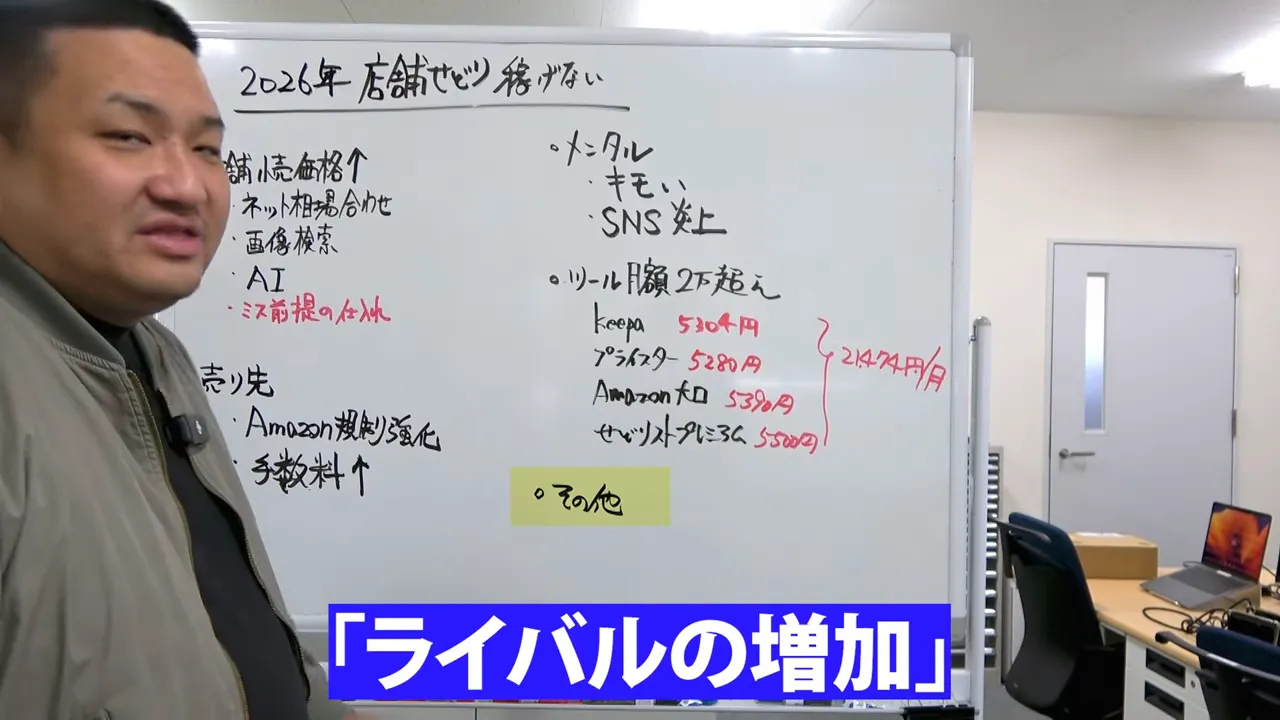 2026年 店舗せどり 稼げない
舗小売価格↑
・ネット相場合わせ
・画像検索
・AI
・ミス前提の仕入れ
売り先
・Amazon規制強化
・手数料↑
。メンタル
・キモい
・SNS炎上
。ツール月額2万超え
keepa 5304円
プライスター 5280円
Amazon大口 5390円
せどりストプレミアム 5500円
21474円/月
。その他
「ライバルの増加」